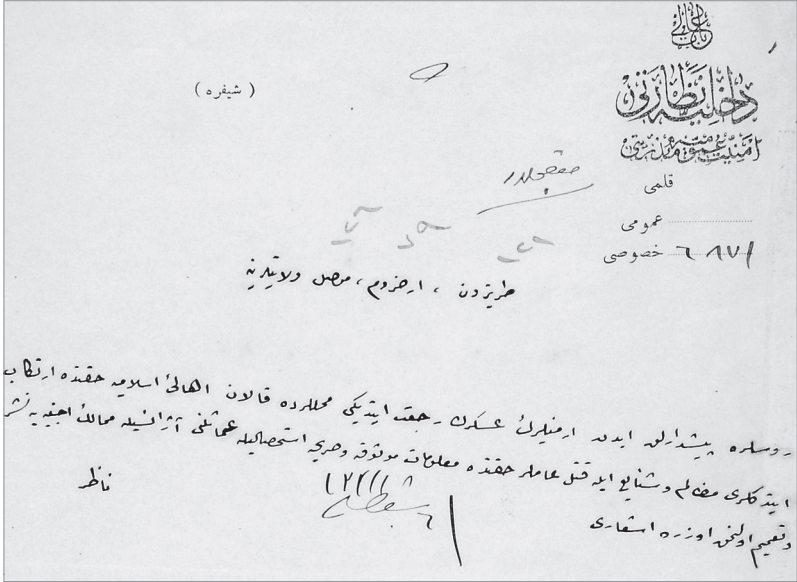 باب عالی
داخلیه نظارتی
امنیت عمومیه مدیریتی
( شیفره )
قلمی
عمومی
خصوصی
طربزون ، ارضروم ، موصل ولایتلرینه
روسلره پیشدارلق ایدن ارمنیلرك عسكرك رجعت ایتدیكی محللرده قالان اهالئ اسلامیه حقنده ارتكاب
ایتدكلری مظالم و شنایع ایله قتل عاملر حقنده معلومات موثوقه و صریحه استحصالیله عثمانلی آژانسیله ممالك اجنبیه یه نشر
و تعمیم اولنمق اوزره اشعاری
ناظر